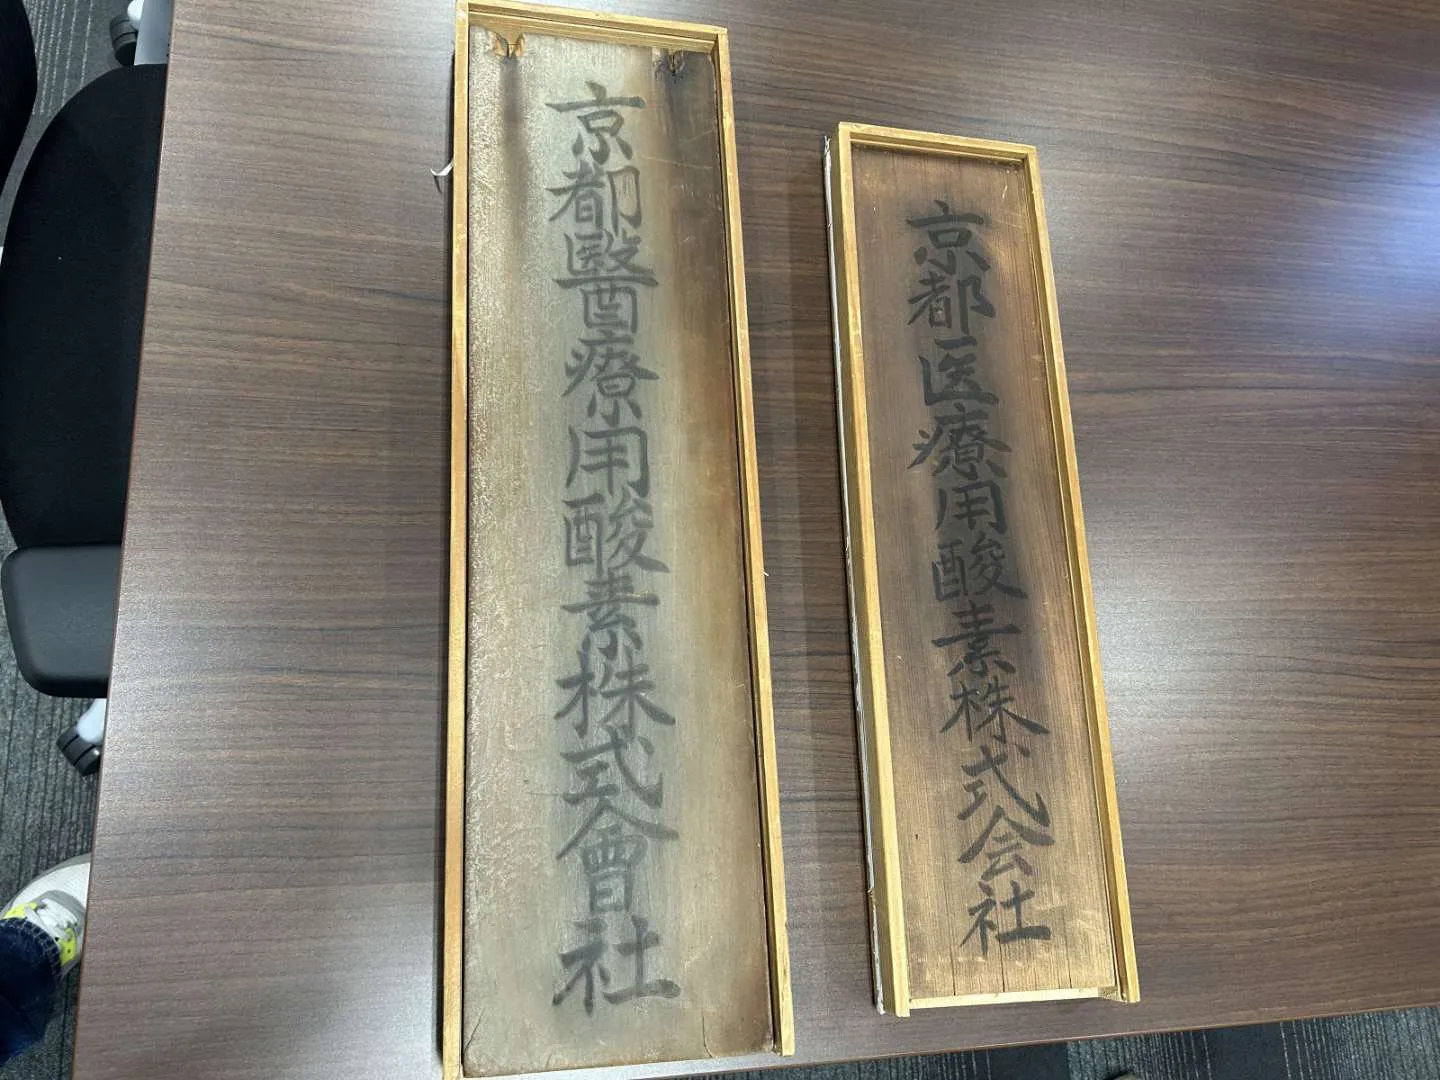 京都醫療用酸素株式會社
京都医療用酸素株式会社